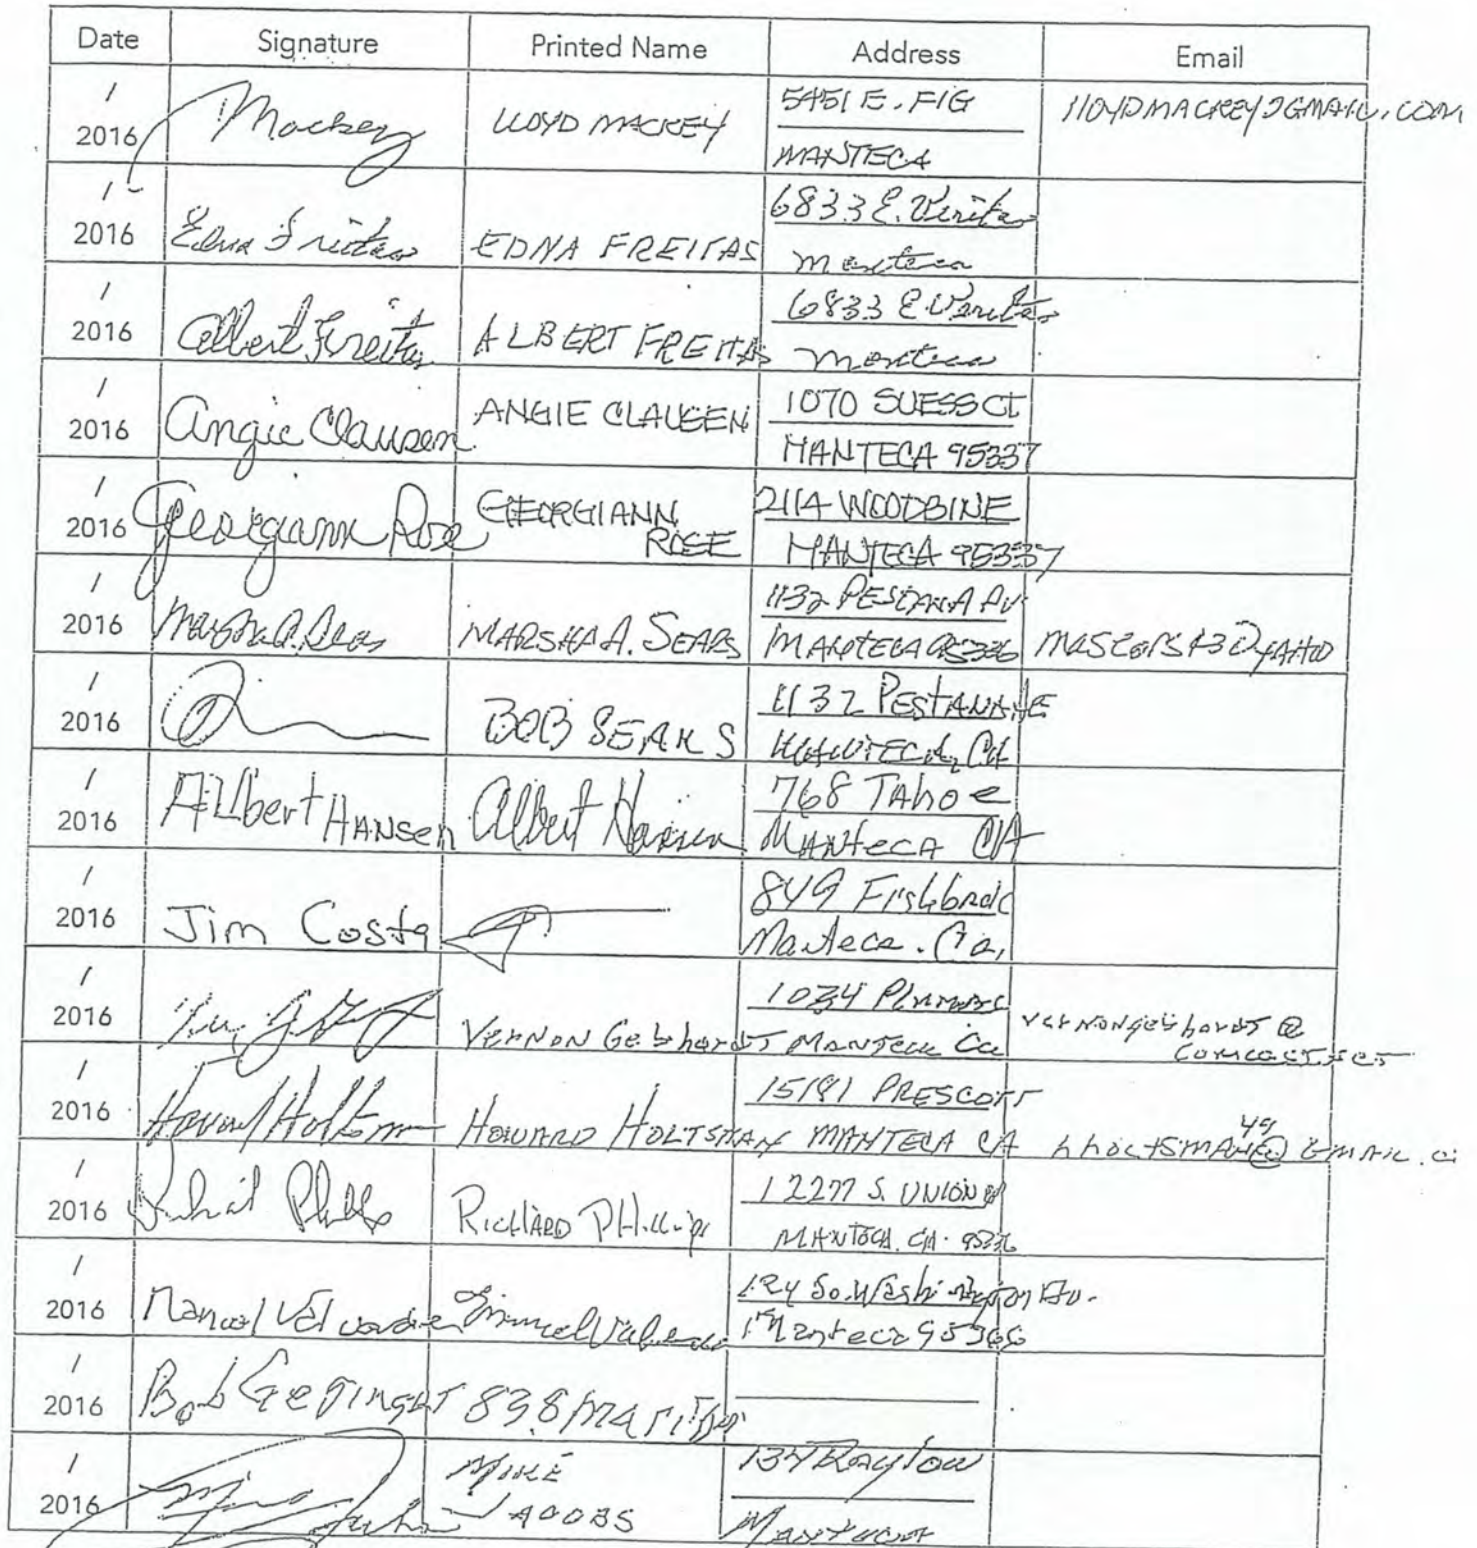 Date Signature Printed Name Address Email
/
2016 Mackey LLOYD MACKEY 5451 E. FIG
MANTECA
/
2016 Edna Freitas EDNA FREITAS 6833 E. Veritas
Manteca
/
2016 Albert Freitas ALBERT FREITAS 6833 E. Veritas
Manteca
/
2016 Angie Clausen ANGIE CLAUSEN 1070 SUESS CT
MANTECA 95337
/
2016 Georgiann Rose GEORGIANN
ROSE 2114 WOODBINE
MANTECA 95337
/
2016 Marsha A. Sears MARSHA A. SEARS 1132 PESTANA AV
MANTECA 95336
/
2016 BOB SEARS 1132 PESTANA AVE
MANTECA, CA
/
2016 Albert HANSEN Albert Hansen 768 TAhoe
MANtecA CA
/
2016 Jim Costa 849
Manteca. Ca,
/
2016 VERNON Gebhardt 1034
MANTECA Ca
vernongebhardt@
comcast.net
/
2016 Howard Holtsman HOWARD HOLTSMAN 15191 PRESCOTT
MANTECA CA
hholtsman49@GMAIL.
/
2016 Richard Phillips RICHARD PHillips 12277 S. UNION
MANTECA, CA. 95336
/
2016 Manuel Valverde 124 So. Washington Av.
Manteca
/
2016 Bob 838
/
2016 MIKE
JACOBS 134
MANTECA